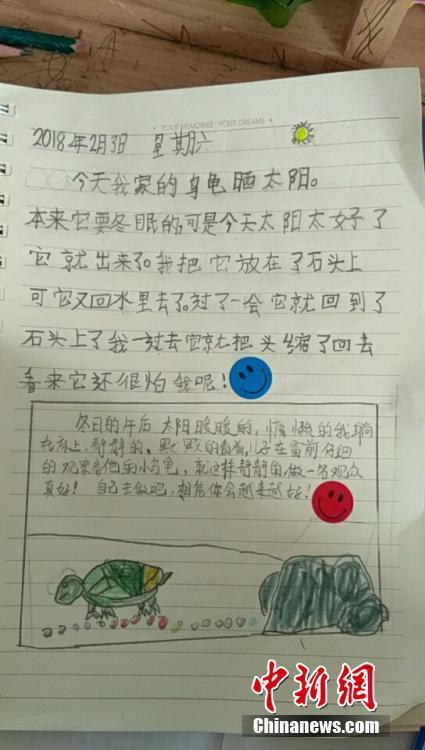 YOUR MEMORIES YOUR DREAMS
2018年2月3日 星期六
今天我家的乌龟晒太阳。
本来它要冬眠的,可是今天太阳太好了
它就出来了。我把它放在了石头上
可它又回水里去了。过了一会它就回到了
石头上了我一过去它就把头缩了回去
看来它还很怕我呢!
冬日的午后,太阳暖暖的,慵懒的我躺
在床上,静静的、默默的看着,儿子在窗前仔细
的观察着他的小乌龟,就这样静静的做一名观众
真好! 自己去做吧,相信你会越来越好!
中新网
Chinanews.com